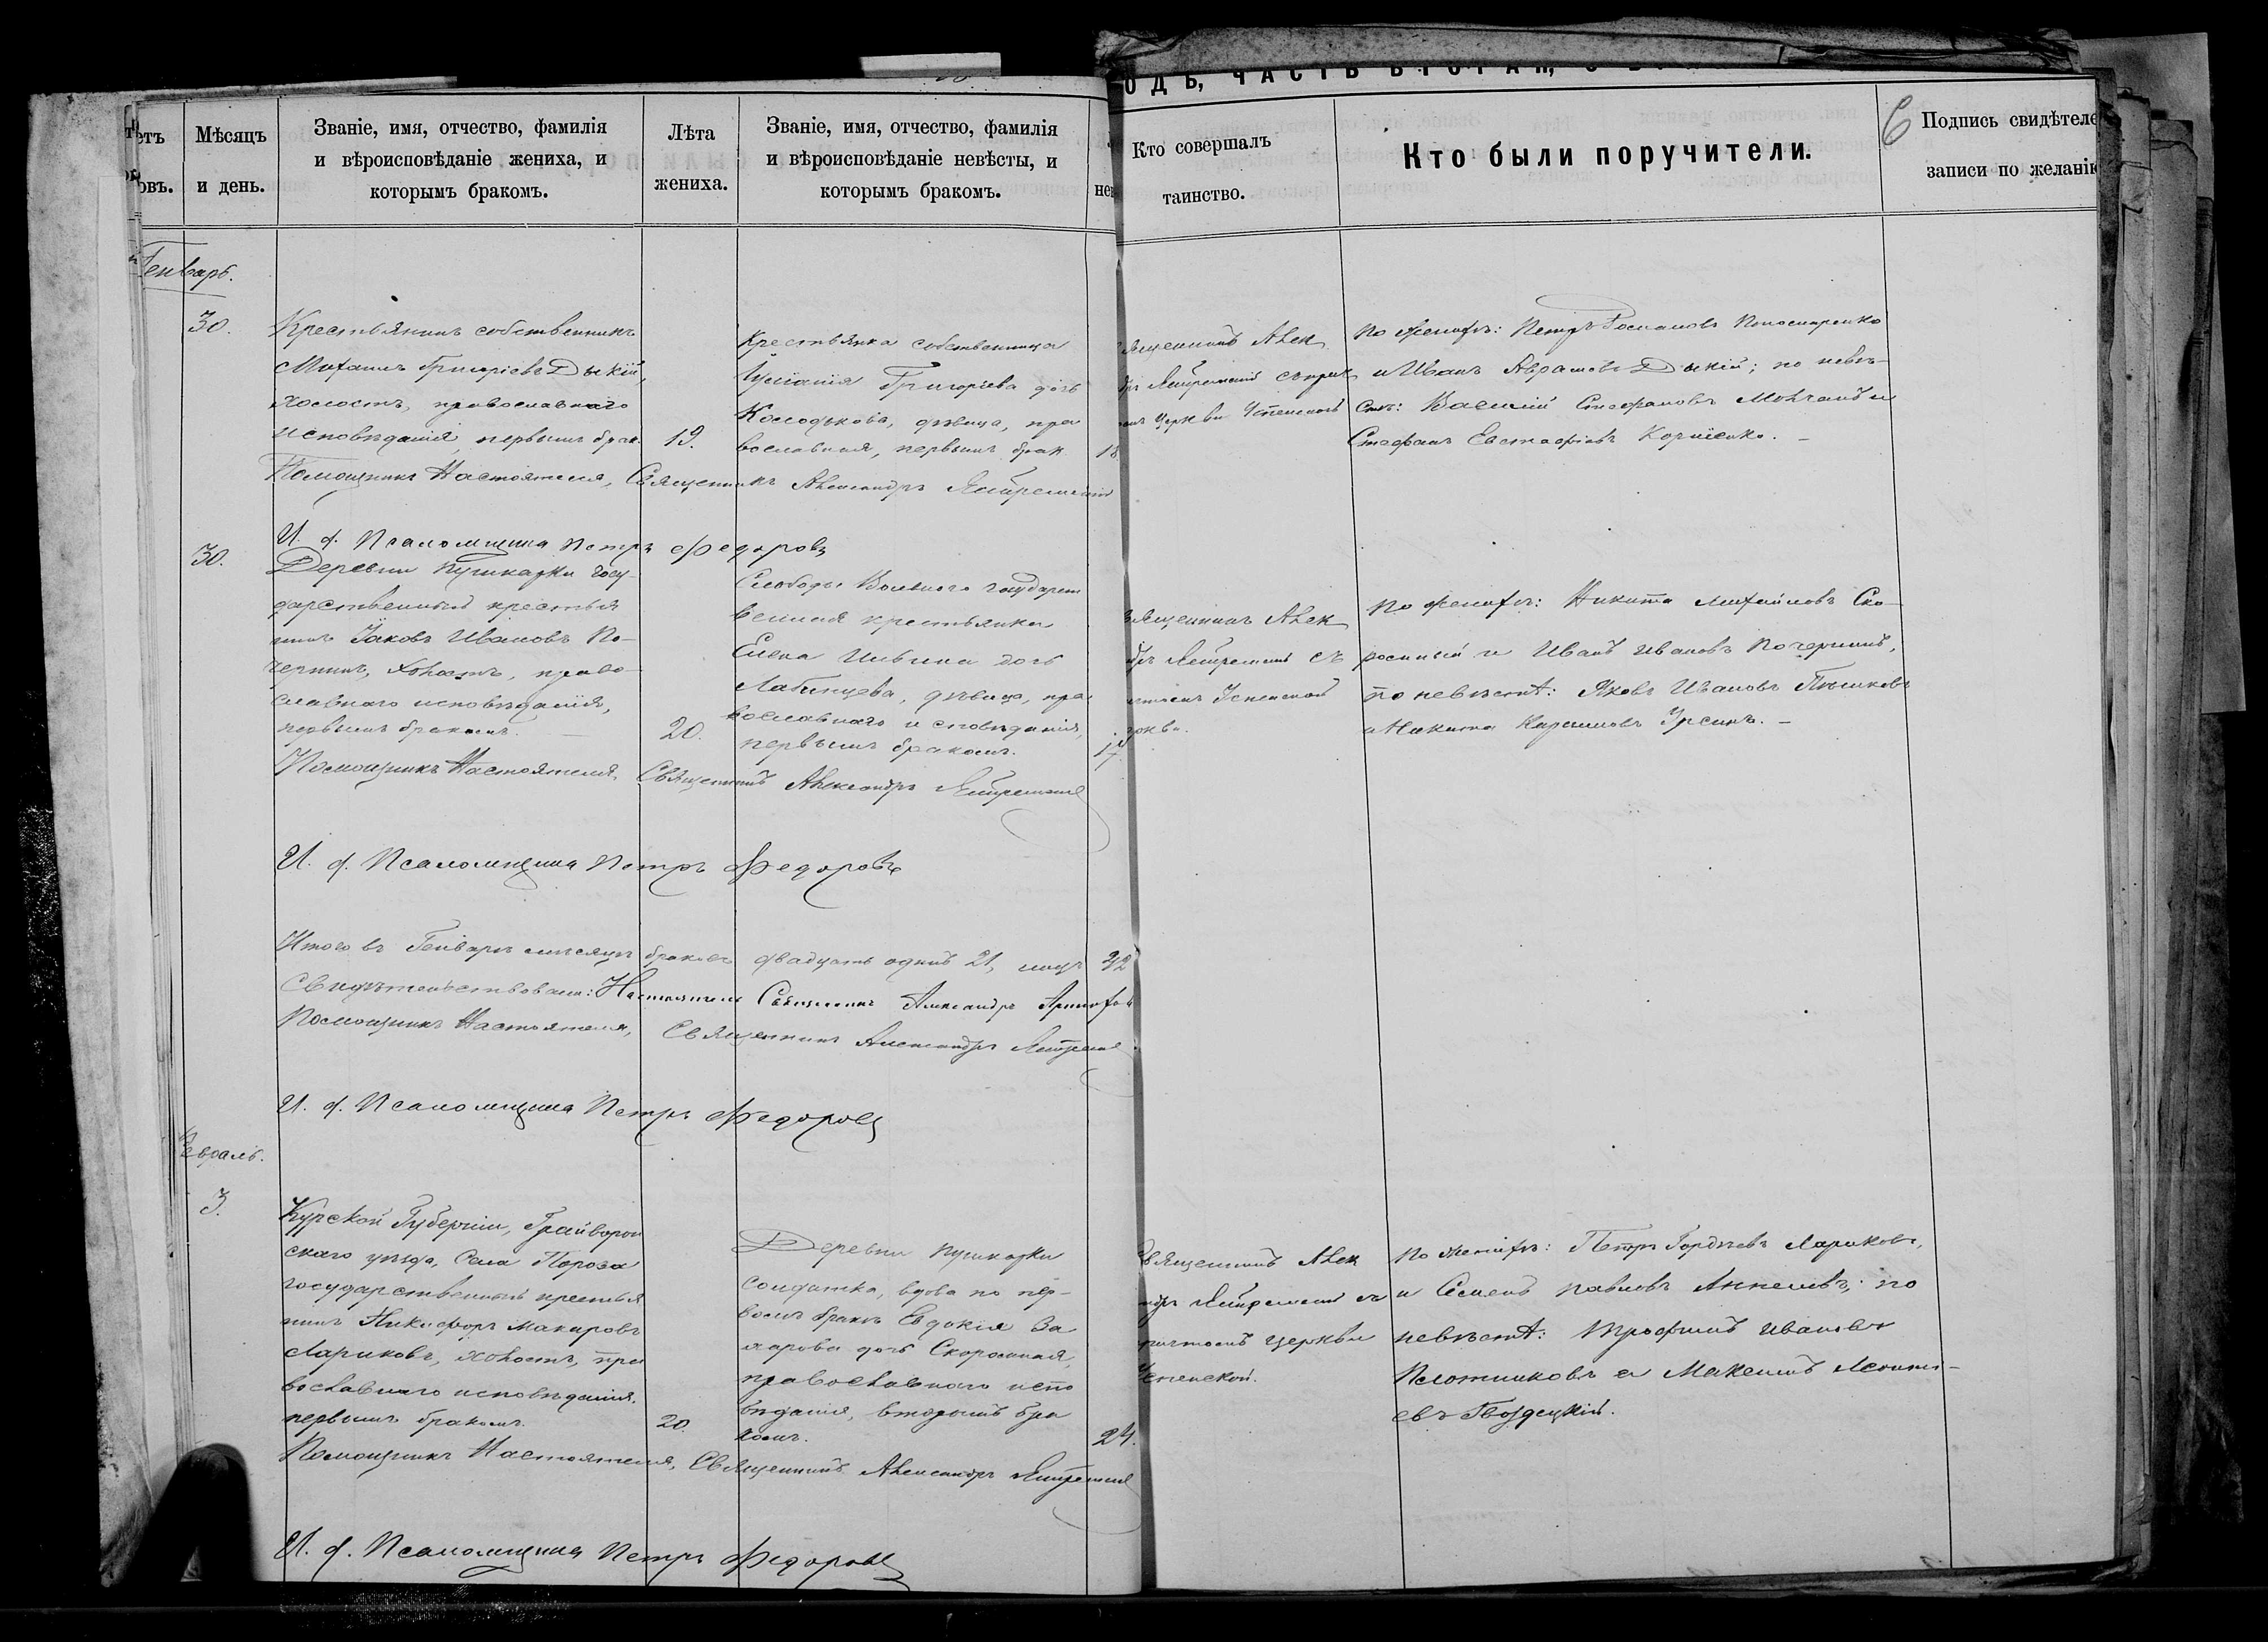 одъ, часть вторая,
Мѣсяцъ и день.
Званіе, имя, отчество, фамилія
и вѣроисповѣданіе жениха, и
которымъ бракомъ.
Лѣта
жениха.
Званіе, имя, отчество, фамилія
и вѣроисповѣданіе невѣсты, и
которымъ бракомъ.
Кто совершалъ
таинство.
Кто были поручители.
6
Подпись свидѣтеле
записи по желанію
Генварь.
30.
Крестьянинъ собственникъ
Михаилъ Григоріевъ Дыкій,
холостъ, православнаго
исповѣданія, первымъ брак.
19.
Крестьянка собственница
Григоріева дочь
Колодькова, дѣвица, пра
вославная, первымъ брак.
18
ященникъ Алек
церкви Успенской
По женихѣ: Петръ Романовъ
и Иванъ Аврамовъ Дыкій; по невѣ-
стѣ: Василій Стефановъ Мовчанъ и
Стефанъ Евстафіевъ Корніенко. –
Помощникъ Настоятеля, Священникъ Александръ
И. д. Псаломщика Петръ Федоровъ
30.
Деревни Пушкарки госу-
дарственный крестья
нинъ Іаковъ Ивановъ По-
чернинъ, холостъ, право-
славнаго исповѣданія,
первымъ бракомъ. –
20.
Слободы Вольного государст
венная крестьянка
Елена Ильина дочь
Лабинцева, дѣвица, пра
вославнаго исповѣданія,
первымъ бракомъ.
17
вященникъ Алек
Успенской
По женихѣ: Никита Михайловъ Ско-
ромный и Иванъ Ивановъ Почернинъ,
по невѣстѣ: Яковъ Ивановъ
и Никита –
Помощникъ Настоятеля, Священникъ Александръ
И. д. Псаломщика Петръ Федоровъ
Итого въ Генварѣ мѣсяцѣ браковъ двадцать одинъ 21,
Свидѣтельствовали: Настоятель Священникъ Александръ
Помощникъ Настоятеля, Священникъ Александръ
И. д. Псаломщика Петръ Федоровъ
Февраль.
3.
Курской Губерніи, Грайворон
скаго уѣзда, села Пороза
государственный крестья
нинъ Никифоръ Макаровъ
Лариковъ, холостъ, пра
вославнаго исповѣданія,
первымъ бракомъ.
20.
Деревни Пушкарки
солдатка, вдова по пер-
вомъ бракѣ Евдокія За
харова дочь Скоромная,
православнаго испо
вѣданія, вторымъ бра
комъ.
24.
Священникъ Алек
причтомъ церкви
Успенской.
По женихѣ: Петръ Гордѣевъ Лариковъ,
и Семенъ Павловъ по
невѣстѣ: Трофимъ Ивановъ
Плотниковъ и Максимъ Леонть-
евъ Гвоздецкій.
Помощникъ Настоятеля, Священникъ Александръ
И. д. Псаломщика Петръ Федоровъ